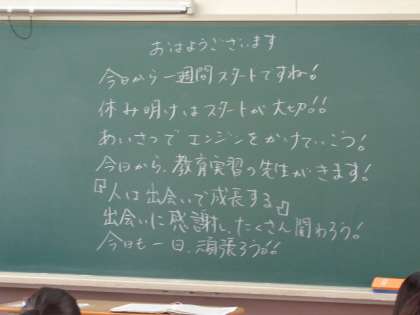 おはようございます
今日から一週間スタートですね!
休み明けはスタートが大切!!
あいさつでエンジンをかけていこう!
今日から、教育実習の先生がきます!
『人は出会いで成長する』
出会いに感謝し、たくさん関わろう!
今日も一日、頑張ろう!!